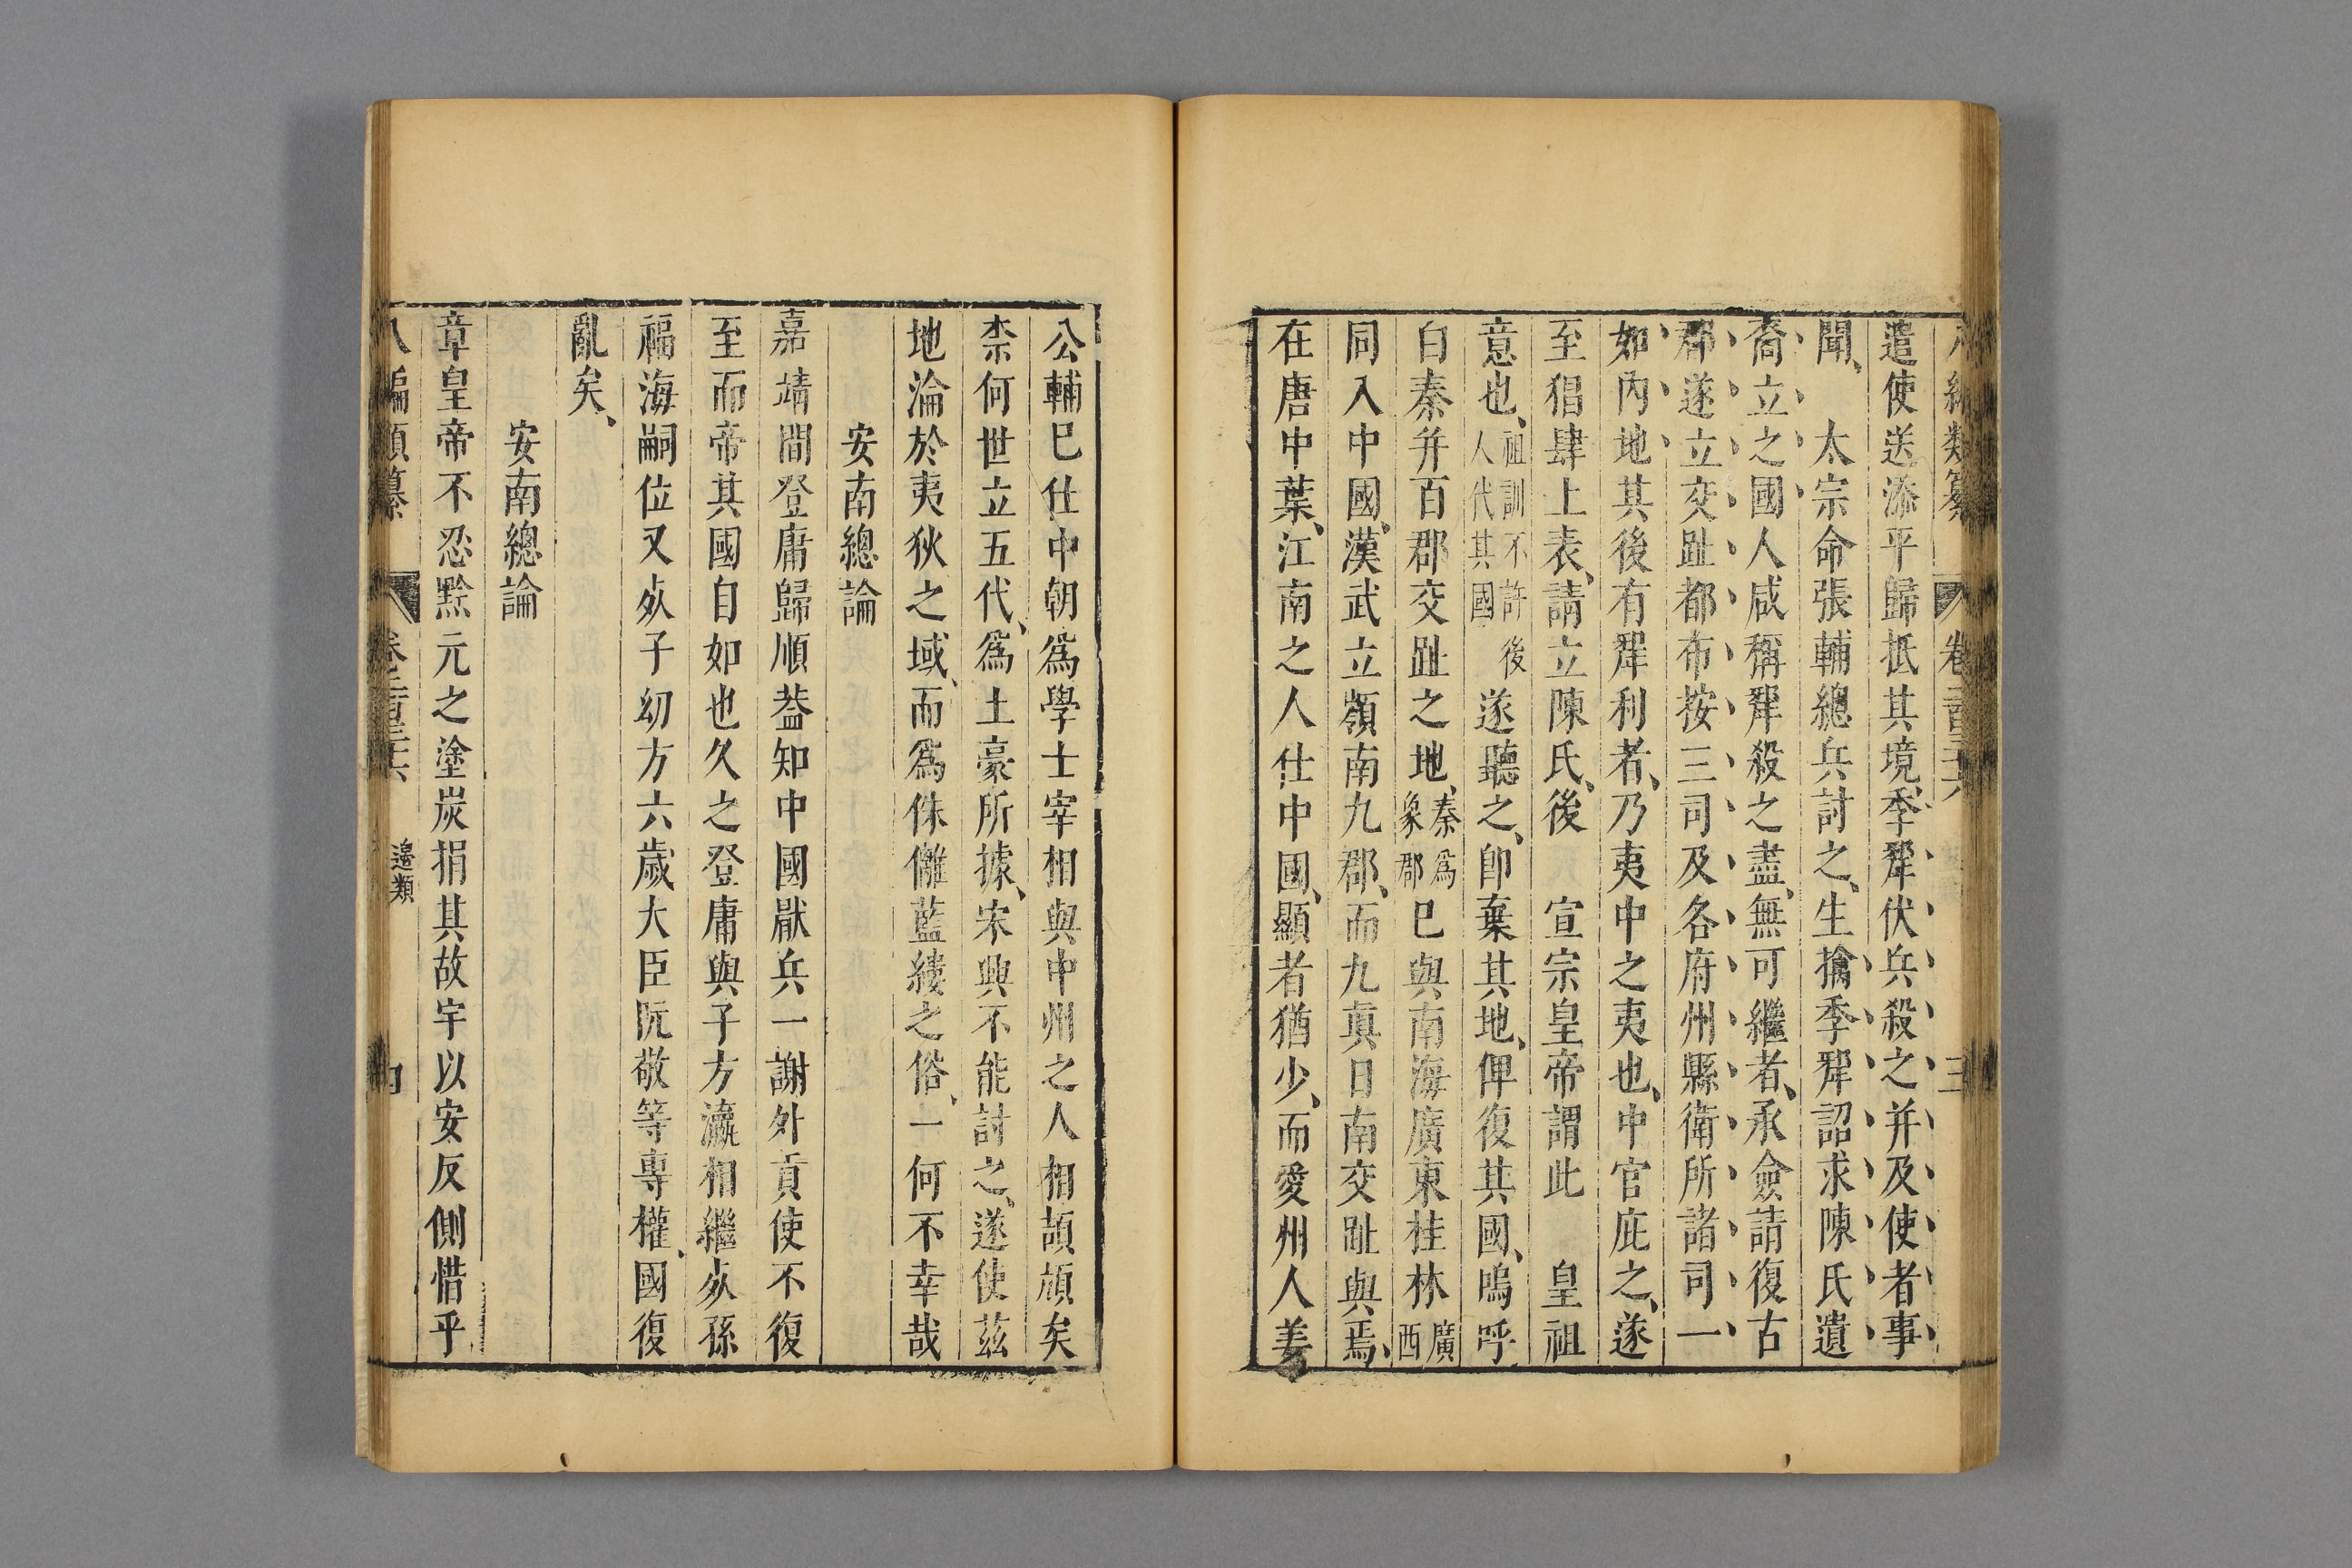 遣使送添平歸抵其境、季犛伏兵殺之并及使者事
聞、　太宗命張輔總兵討之、生擒季犛詔求陳氏遺
裔立之國人咸稱犛殺之盡、無可繼者、承僉請復古
郡遂立交趾都布按三司及各府州縣衛所諸司一
如內地其後有犛利者、乃夷中之夷也、中官庇之、遂
至猖肆上表、請立陳氏、後　宣宗皇帝謂此　皇祖
意也、祖訓不許後人代其國遂聽之、卽棄其地、俾復其國、嗚呼
自秦并百郡交趾之地、秦爲象郡巳與南海廣東桂林廣西
同入中國、漢武立嶺南九郡、而九眞日南交趾與焉、
在唐中葉、江南之人仕中國、顯者猶少、而愛州人姜
公輔巳仕中朝爲學士宰相與中州之人相頡頏矣
柰何世立五代、爲土豪所據、宋興不能討之、遂使茲
地淪於夷狄之域、而爲侏儺藍縷之俗、一何不幸哉
安南總論
嘉靖間登庸歸順葢知中國厭兵一謝外貢使不復
至而帝其國自如也久之登庸與子方瀛相繼死孫
福海嗣位又死子幼方六歲大臣阮敬等專權、國復
亂矣、
安南總論
章皇帝不忍黔元之塗炭捐其故宇以安反側惜乎
八編類纂　卷之二百三十六　邊類